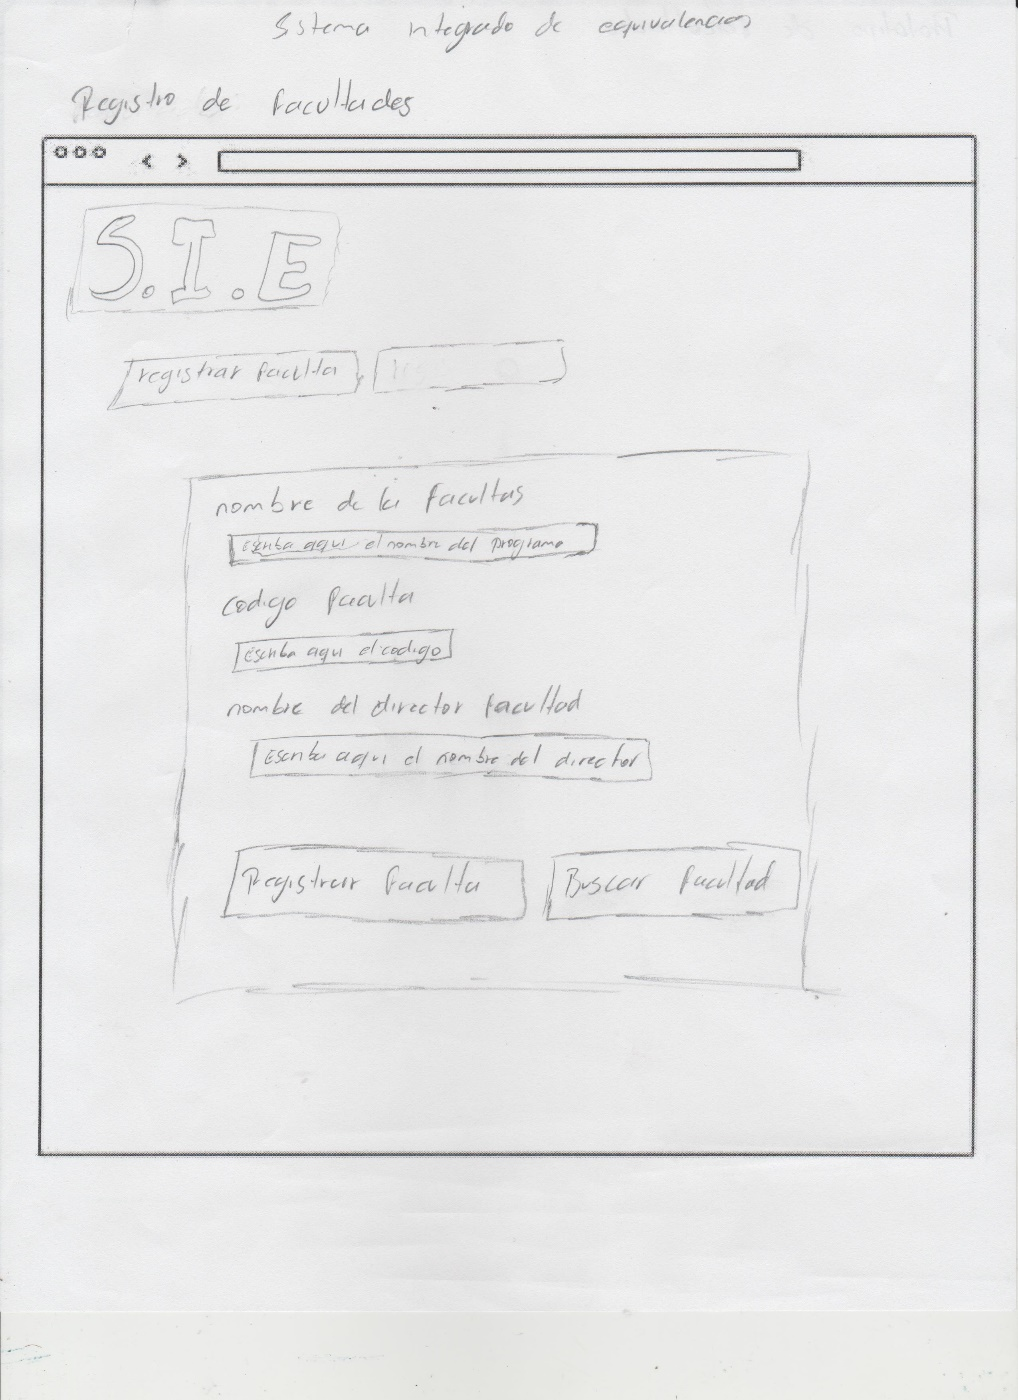 Sistema integrado de equivalencias
Registro de facultades
S.I.E
registrar faculta
nombre de la facultas
Escriba aqui el nombre del programa
codigo faculta
Escriba aqui el codigo
nombre del director facultad
Escriba aqui el nombre del director
Registrar faculta
Buscar facultad